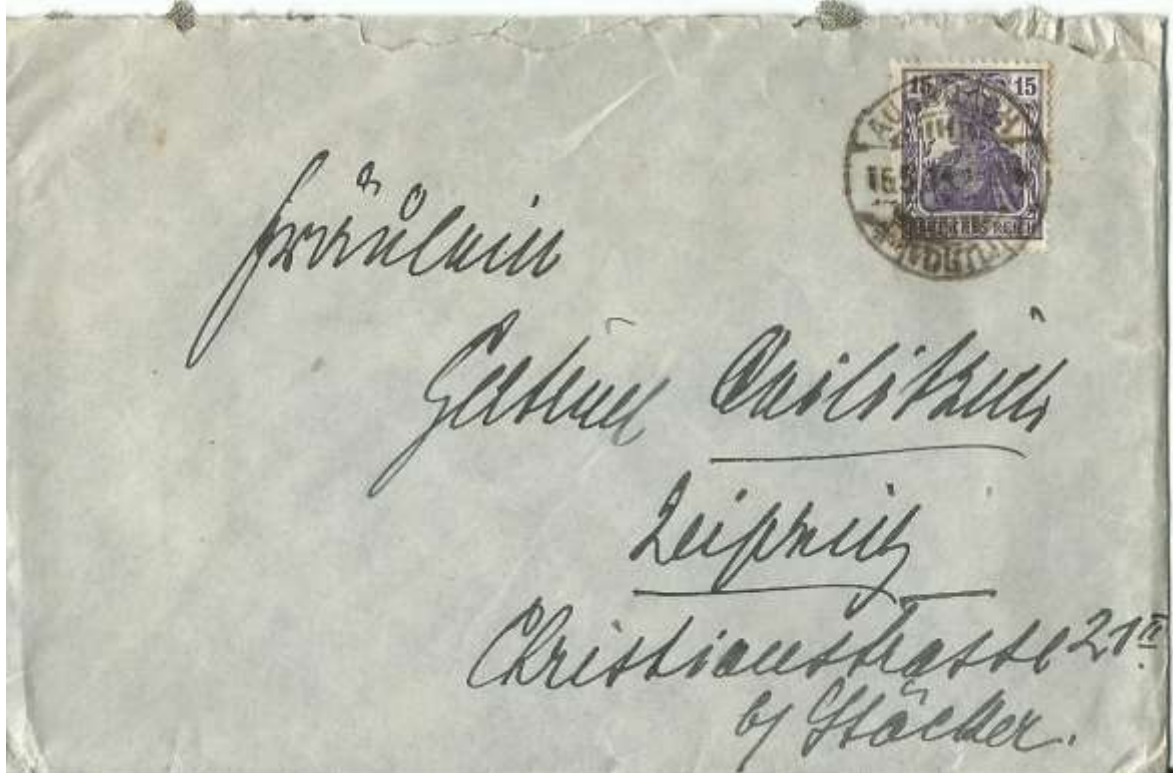 15 15
DEUTSCHES REICH
Fräulein
Gertrud
Leipzig
Christianstrasse 21 II
b/ Stöcker.